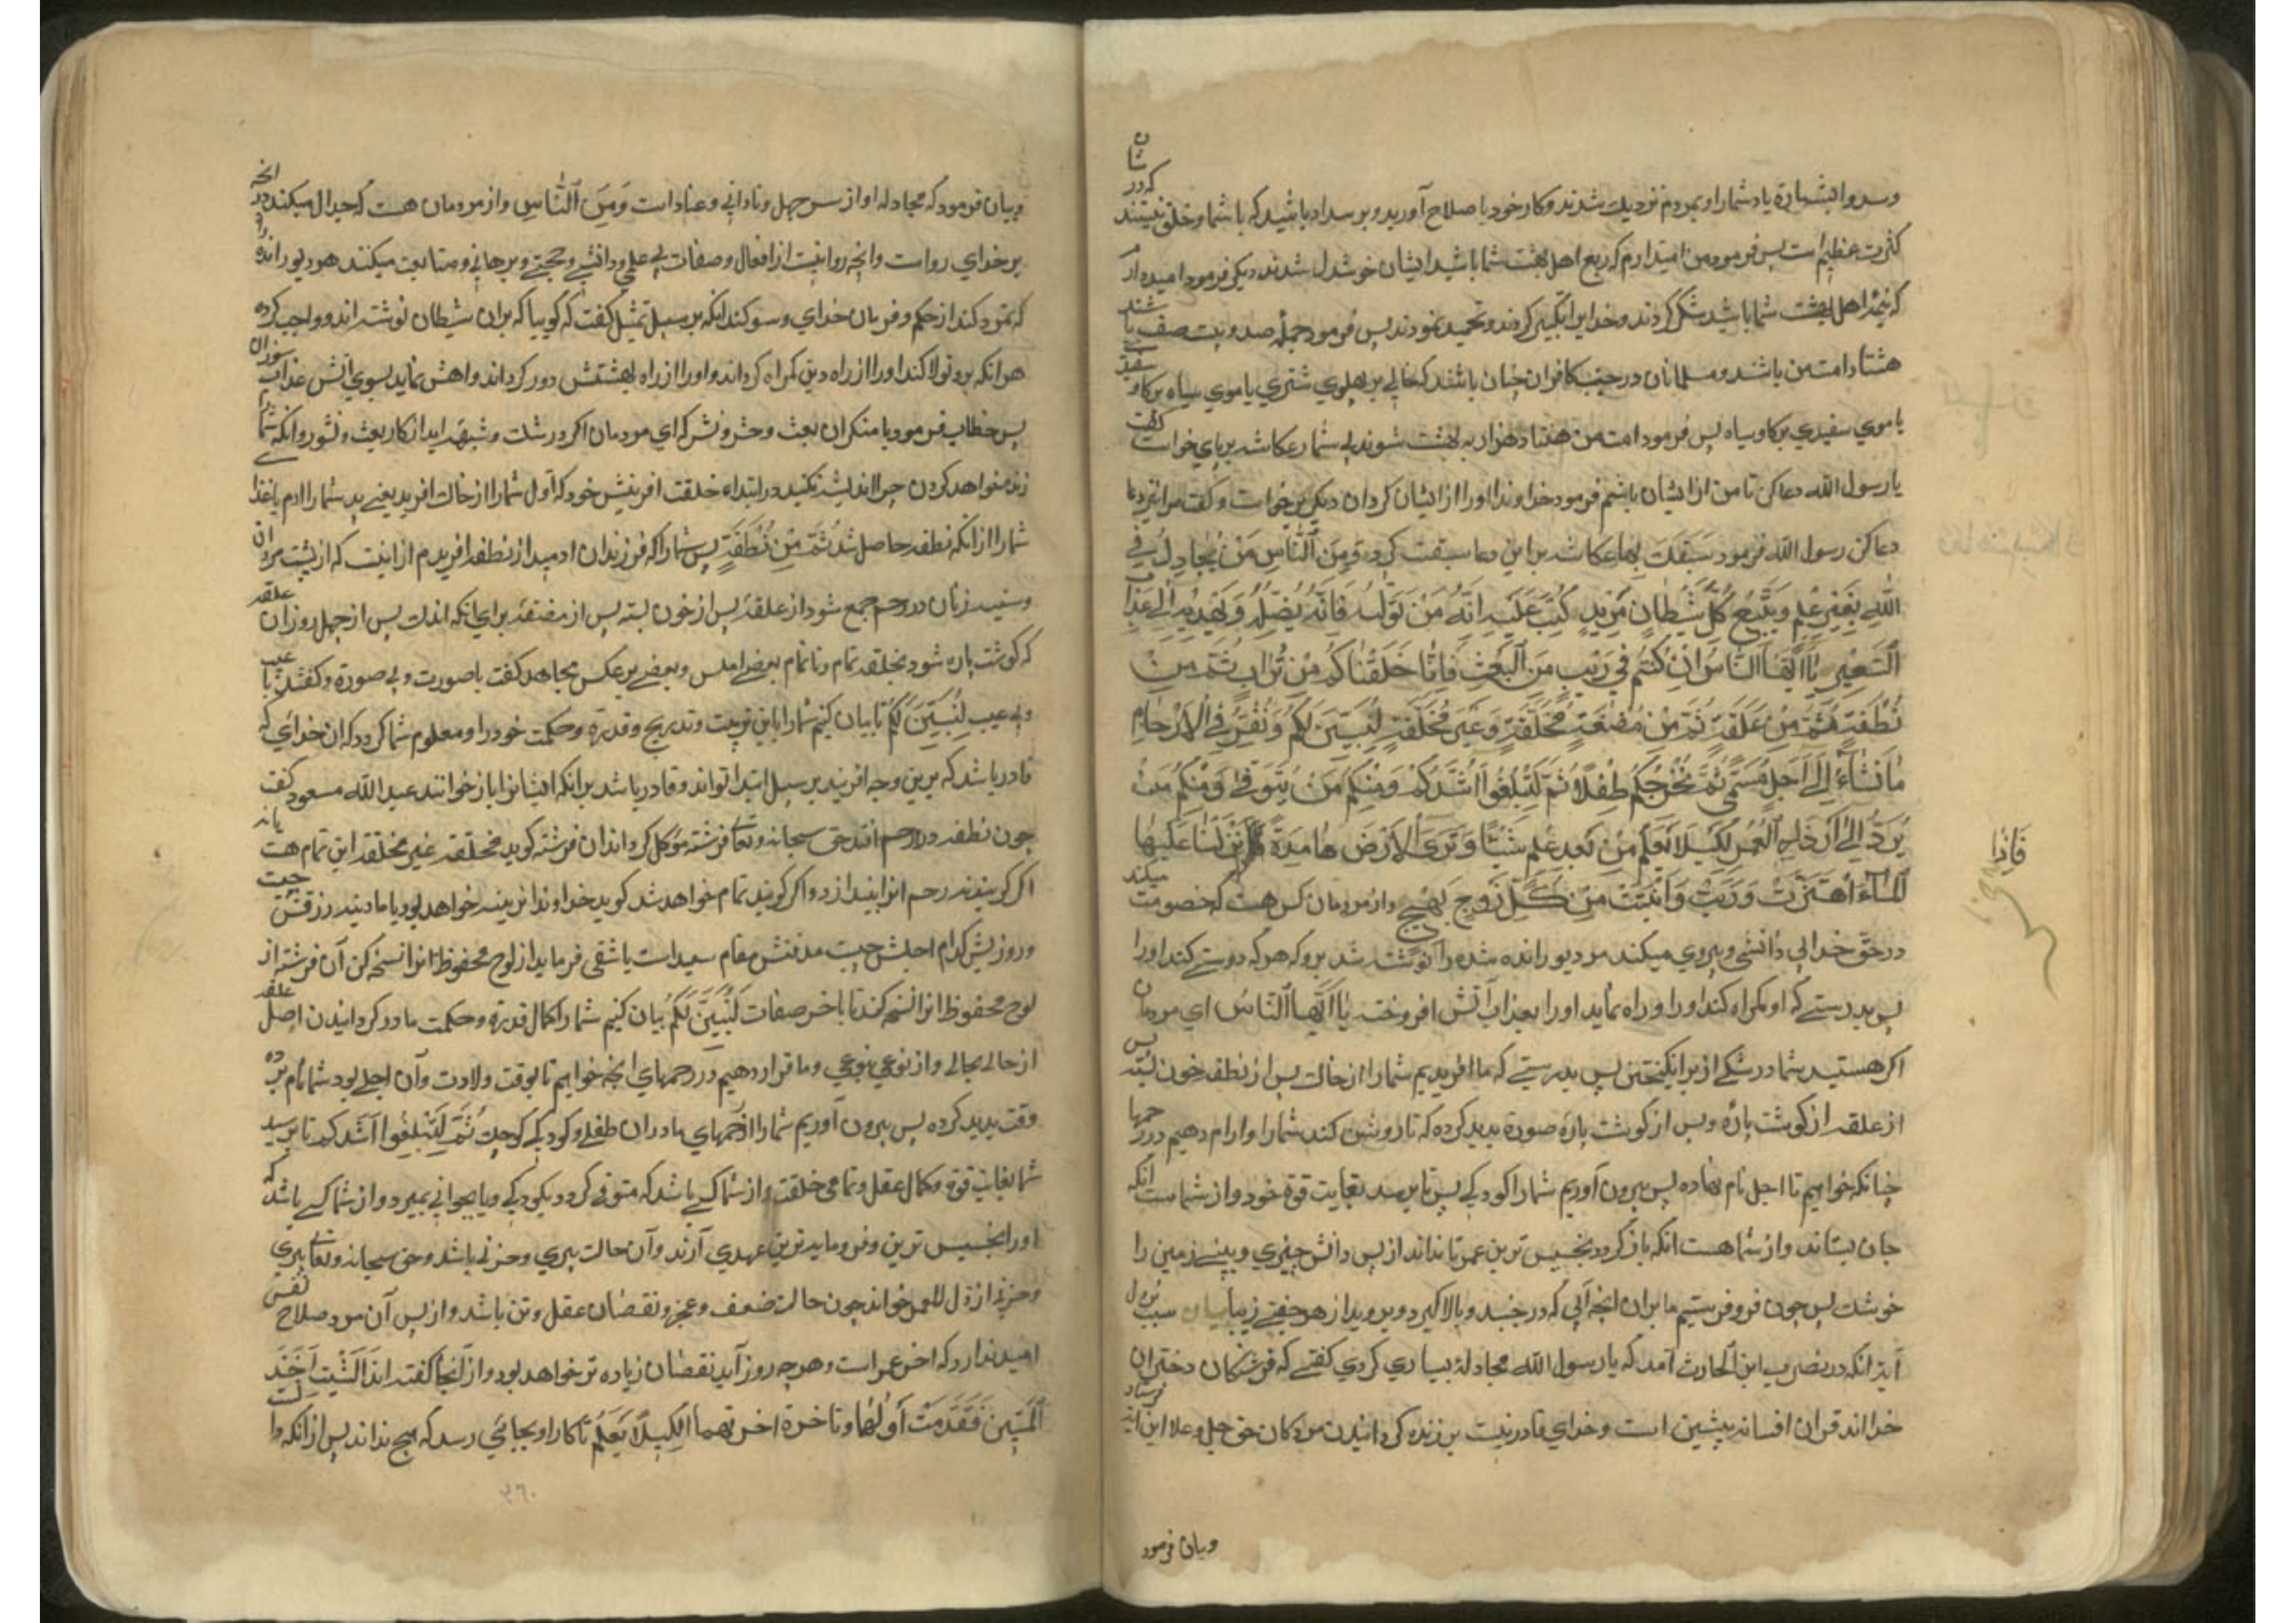 وسدوا بشارة یاد شمارا و بمردم نزدیك شدند و کار خود با صلاح آورید و بر سداد باشید که با شما دو خلق نیستند که در شان
کثرت عظیم است پس فرمود من امیدارم که ربع اهل بهشت شما باشید ایشان خوشدل شدند دیکر فرمود امیدوارم
که نیمۀ اهل بهشت شما باشید شکر کردند و خدایرا تکبیر کردند و تحمید نمودند پس فرمود جمله صد و بیست صف باشند
هشتاد امت من باشند و مسلمانان در جنب کافران چنان باشند که خالی بر پهلوی شتری یا موی سیاه بر کاو سفید
یا موی سفیدی بر کاو سیاه پس فرمود امت من هفتاد هزار به بهشت شوند بی شمار عکاشه بر پای خواست کفت
یا رسول الله دعا کن تا من از ایشان باشم فرمود خداوندا اورا از ایشان کردان دیکری برخواست و کفت مرا نیز دعا
دعا کن رسول الله فرمود سَبَقَكَ بِهَا عکاشه بر این دعا سبقت کرد وَمِنَ ٱلنَّاسِ مَنْ يُجَادِلُ فِي
ٱللَّهِ بِغَيْرِ عِلْمٍ وَيَتَّبِعُ كُلَّ شَيْطَانٍ مَرِيدٍ كُتِبَ عَلَيْهِ أَنَّهُ مَنْ تَوَلَّاهُ فَأَنَّهُ يُضِلُّهُ وَيَهْدِيهِ إِلَى عَذَابِ
ٱلسَّعِيرِ يَا أَيُّهَا ٱلنَّاسُ إِنْ كُنْتُمْ فِي رَيْبٍ مِنَ ٱلْبَعْثِ فَإِنَّا خَلَقْنَاكُمْ مِنْ تُرَابٍ ثُمَّ مِنْ
نُطْفَةٍ ثُمَّ مِنْ عَلَقَةٍ ثُمَّ مِنْ مُضْغَةٍ مُخَلَّقَةٍ وَغَيْرِ مُخَلَّقَةٍ لِنُبَيِّنَ لَكُمْ وَنُقِرُّ فِي ٱلْأَرْحَامِ
مَا نَشَاءُ إِلَى أَجَلٍ مُسَمًّى ثُمَّ نُخْرِجُكُمْ طِفْلًا ثُمَّ لِتَبْلُغُوا أَشُدَّكُمْ وَمِنْكُمْ مَنْ يُتَوَفَّى وَمِنْكُمْ مَنْ
يُرَدُّ إِلَى أَرْذَلِ ٱلْعُمُرِ لِكَيْلَا يَعْلَمَ مِنْ بَعْدِ عِلْمٍ شَيْئًا وَتَرَى ٱلْأَرْضَ هَامِدَةً أَنْزَلْنَا عَلَيْهَا
فَإِذَا
ٱلْمَاءَ ٱهْتَزَّتْ وَرَبَتْ وَأَنْبَتَتْ مِنْ كُلِّ زَوْجٍ بَهِيجٍ و از مردمان کس هست که خصومت میکند
در حق خدا بی دانشی و پیروی میکند مر دیو رانده شده را نوشته شد برو که هر که دوستی کند اورا
پس بدرستی که او کمراه کند اورا و راه نماید اورا بعذاب آتش افروخته يَا أَيُّهَا ٱلنَّاسُ ای مردمان
اکر هستید شما در شکی از برانکیختن پس بدرستی که ما افریدیم شمارا از خاك پس از نطفه پس خون بسته
از علقه از کوشت پاره و پس از کوشت پاره صورة پدید کرده که تا روشن کند شمارا و ارام دهیم در رحمها
چنانکه خواهیم تا اجل نام نهاده پس بیرون آوریم شمارا کودکی پس تا برسد بغایت قوة خود و از شماست انکه
جان بستاند و از شما هست انکه باز کردد بخسیس ترین عمر تا نداند از پس دانش چیزی و بینی زمین را
خوشك پس چون فرو فرستیم ما بران انجه آبی که در جنبد و بالا کیرد و برویید از هر جفتی زیبا بیان سبب نزول
آیة انکه در نضر بن الحارث آمد که یا رسول الله مجادلۀ بسیاری کردی کفتی که فرشتکان دختران
خدا اند قران افسانه پیشین است و خدای قادر نیست بر زنده کردانیدن مردکان حق جل و علا این ایة فرستاد
و بیان فرمود
و بیان فرمود که مجادله او از سر جهل و نادانی و عنادست وَمِنَ ٱلنَّاسِ و از مردمان هست که جدال میکند در انجه
بر خدای رواست و انجه روا نیست از افعال و صفات بی علمی و دانشی و حجتی و برهانی و متابعت میکنند هر دیو رانده را
که تمرد کند از حکم و فرمان خدای و سوکند انکه بر سبیل تمثیل کفت که کوییا که بران شیطان نوشته اند و واجب کرده
هر انکه بدو تولا کند اورا از راه دین کمراه کرداند و اورا از راه بهشتش دور کرداند و راهش نماید بسوی آتش عذاب سوزان
پس خطاب فرمود با منکران بعث و حشر و نشر که ای مردمان اکر در شك و شبهه اید از کار بعث و نشور و انکه شمارا
زنده خواهد کردن چرا اندیشه نکنید در ابتداء خلقت افرینش خود که اول شمارا از خاك افرید یعنی پدر شما را ادم یا غذا
شمارا از انکه نطفه حاصل شد ثُمَّ مِنْ نُطْفَةٍ پس شمارا که فرزندان ادمید از نطفه افریدم از اینست که از پشت مردان
و سینه زنان در رحم جمع شود از علقه پس از خون بسته پس از مضغه برای انکه اندك پس از چهل روز ان علقه
که کوشت پاره شود مخلقه تمام و ناتمام بعضی املس و بعضی بر عکس مجاهد کفت با صورت و بی صورة و کفتند با عیب
و بی عیب لِنُبَيِّنَ لَكُمْ تا بیان کنیم شمارا باین تربیت و تدریج و قدرة و حکمت خود را و معلوم شما کردد که ان خدای که
قادر باشد که برین وجه افریند بر سبیل ابتدا تواند و قادر باشد برانکه ایشانرا باز خوانند عبد الله مسعود کفت
چون نطفه در رحم افتد حق سبحانه وتعالی فرشته موکل کرداند ان فرشته کوید مخلقة غیر مخلقة این تمام هست یا نه
اکر کویند نه رحم انرا بیندازد و اکر کویند تمام خواهد شد کوید خداوندا نرینه خواهد بود یا مادینه رزقش چیست
و روزیش کدام اجلش چیست مدفنش مقام سعید است یا شقی فرماید از لوح محفوظ انرا نسخه کن آن فرشته از
لوح محفوظ انرا نسخه کند تا باخر صفات لِنُبَيِّنَ لَكُمْ بیان کنیم شمارا کمال قدرة و حکمت ما در کردانیدن اصل علقه
از حالی بحالی و از نوعی بنوعی و ما قرار دهیم در رحمهای انجه خواهیم تا بوقت ولادت و آن اجلی بود شما نام برده
وقت پدید کرده پس بیرون آوریم شمارا از رحمهای مادران طفلی و کودکی کوچك ثُمَّ لِتَبْلُغُوا أَشُدَّكُمْ تا برسید
شما بغایت قوة و کمال عقل و تمامی خلقت و از شما کسی باشد که متوفی کردد بکودکی و یا بجوانی بمیرد و از شما کسی باشد که
اورا بخسیس ترین و فرومایه ترین عهدی آرند و آن حالت پیری و حزنی باشد و حق سبحانه وتعالی پیری
ارذل العمر خواند چون حالت ضعف و عجز و نقصان عقل و تن باشد و از پس آن مرد صلاح نفس
امید ندارد که اخر عمر است و هر چه روز آید نقصان زیاده تر خواهد بود و از انجا کفته اند
تا کار او بجائی رسد که هیچ نداند پس از انکه
۳۶۰